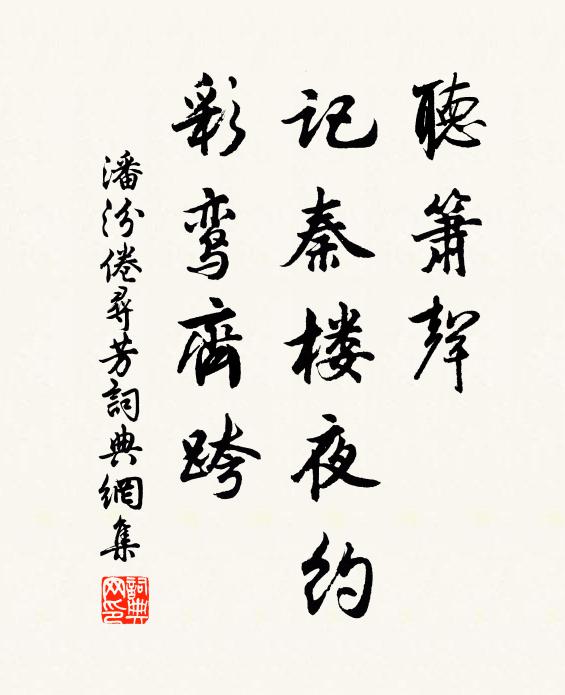 聽簫聲
记秦楼夜约
彩鸾齊跨
潘汾倦尋芳詞典網集
詞典网印